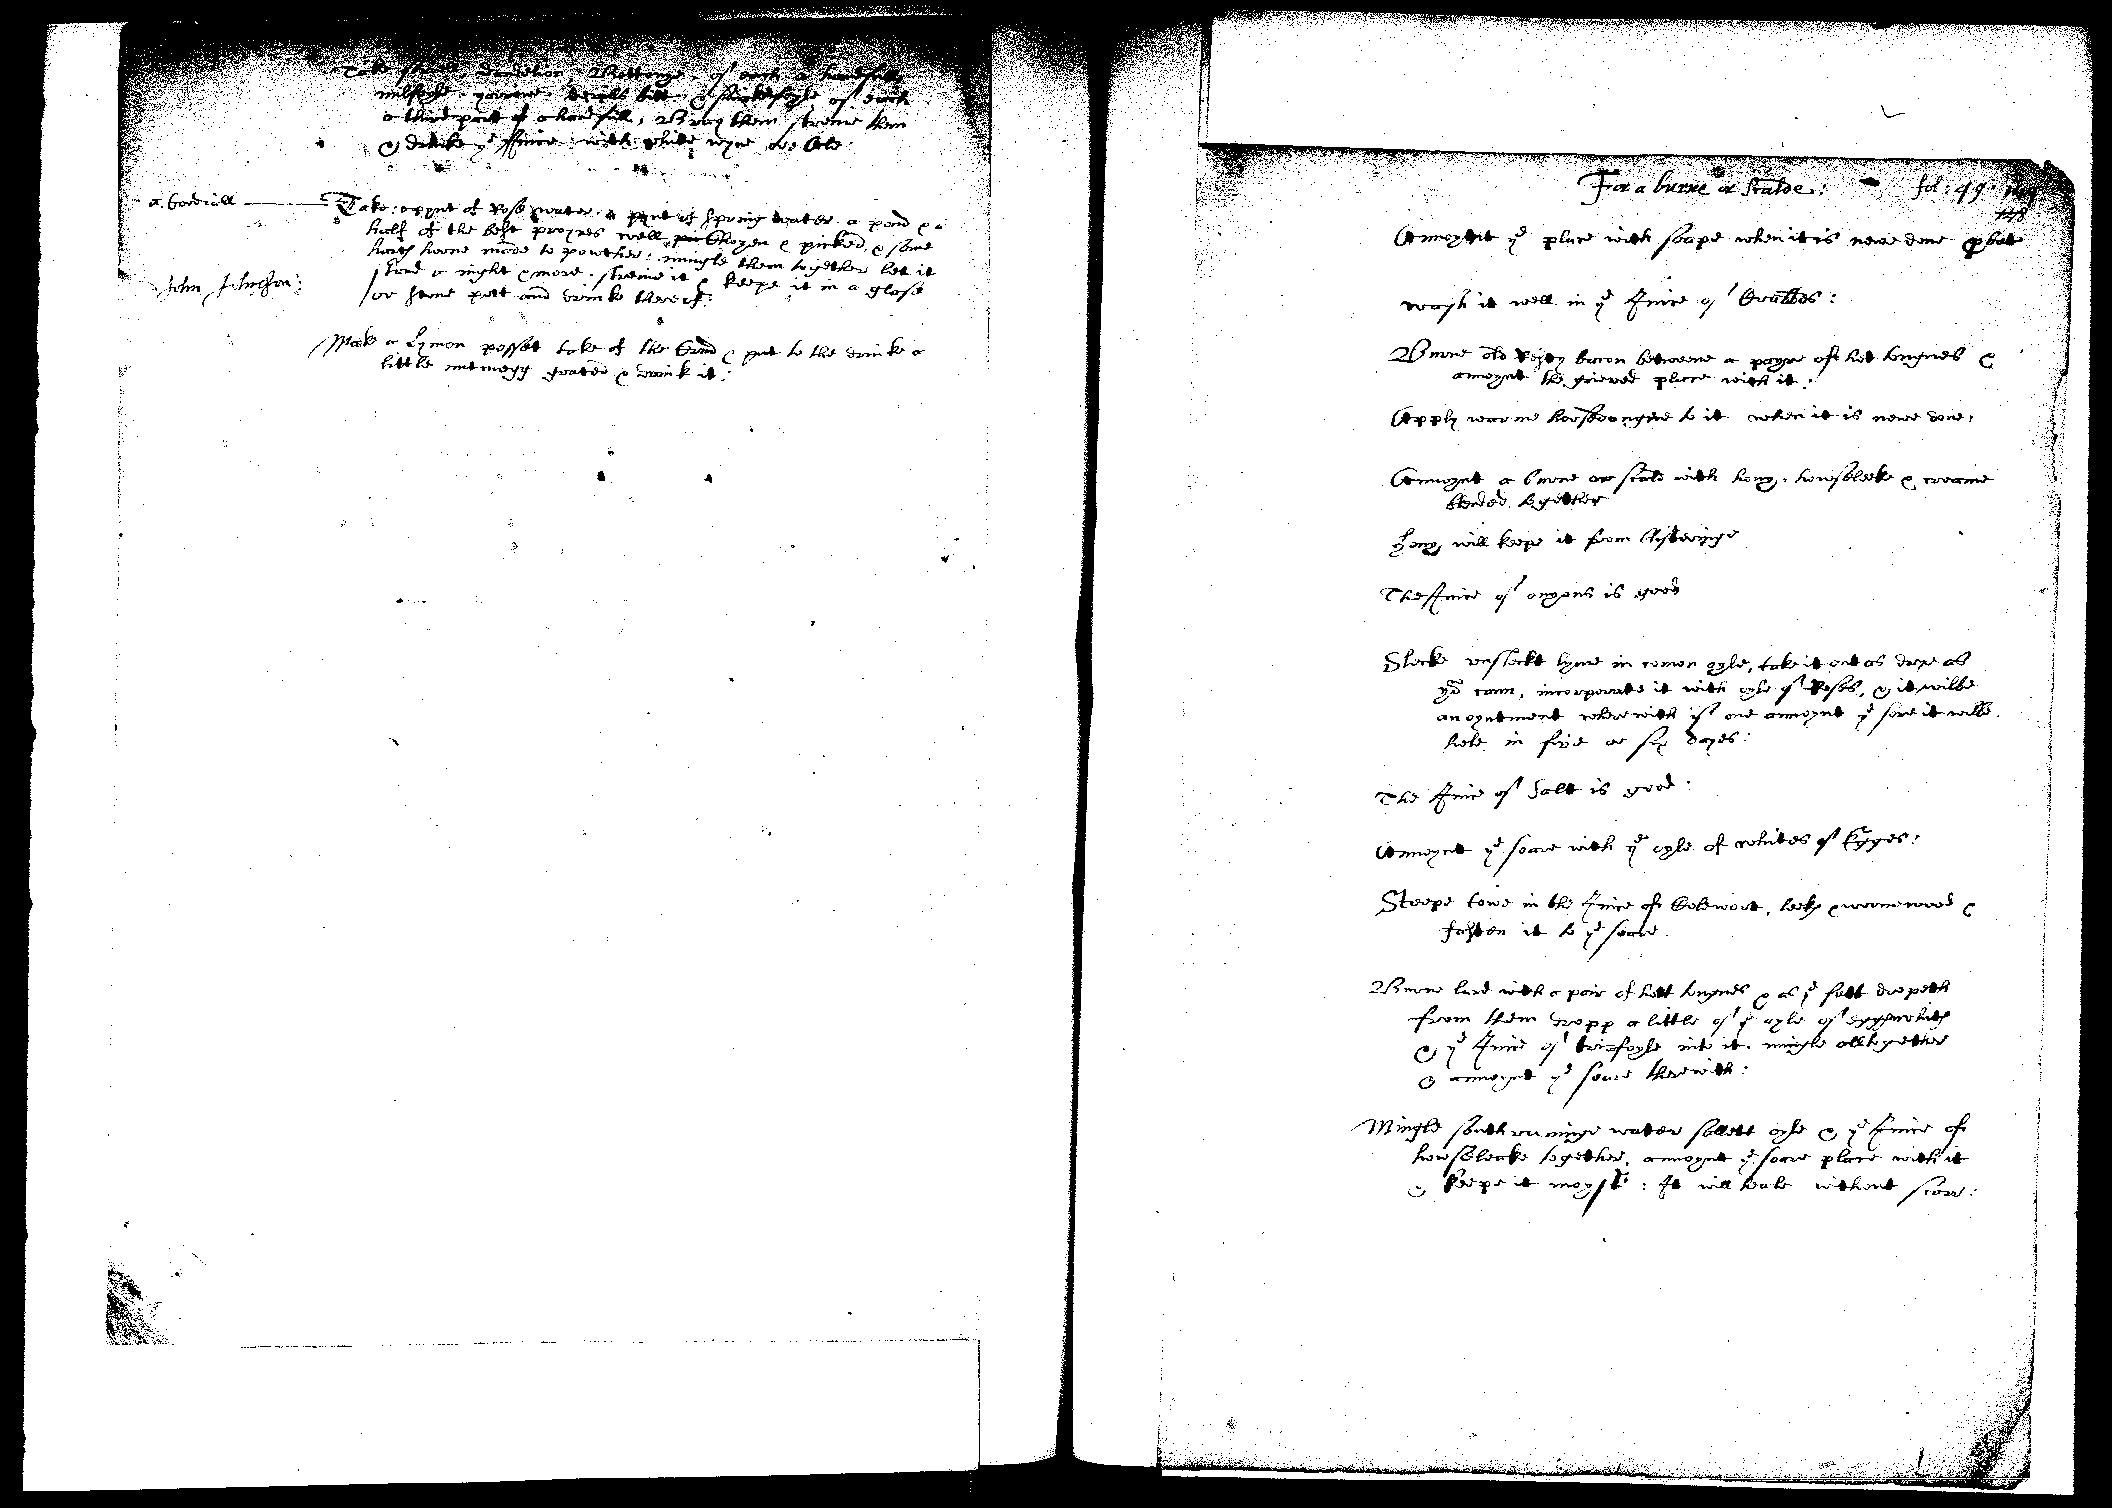 Take sorrell, dandelion, Bettonye, of each a handfull
of each
a third part of a handfull, Bray them streine them
& drinke yͤ Juice with white wyne or Ale
a Cordiall
Take a pynt of Rose water, a pynt of spring water a pond & a
half of the best proynes well stoyen & picked, & some
harts horne made to powther: mingle them together let it
stand a night & more. streine it & keepe it in a glase
or stone pott and drinke thereof.
John Johnson:
Make a Lymon posset take of the Curd & put to the drinke a
little nutmegg grated & drink it:
For a burne or scalde: fol: 49.
118
Annoynt yͤ place with soape when it is newe done pbat
wash it well in yͤ Juice of Crabbes:
Burne old Resty bacon betweene a payre of hot tongues &
annoynt the grieved place with it.
Apply warme horsdounge to it when it is newe done:
Annoynt a burne or scald with hony, howsleeke & creame
together
Hony will keepe it from blisteringe
The Juice of onyons is good
Slecke unsleckt lyme in comon oyle, take it out as drye as
yoͧ cann, incorporate it with oyle of Roses, & it wilbe
an oyntment wherewith if one annoynt yͤ sore it wilbe
hole in five or six dayes:
The Juice of salt is good:
Annoynt yͤ soare with yͤ oyle of whites of Egges:
Steepe towe in the Juice of Colewort, leeks & wormewood &
fasten it to yͤ soare.
Burne lard with a pair of hott tongues & as yͤ fatt dropeth
from them dropp a little of yͤ oyle of eggswhits
& yͤ Juice of treifoyle into it. mingle alltogether
& annoynt yͤ soare therewith:
Mingle southruninge water sallett oyle & yͤ Juice of
howsleake together, annoynt yͤ soare place with it
& keepe it moyst: It will heale without scarr: